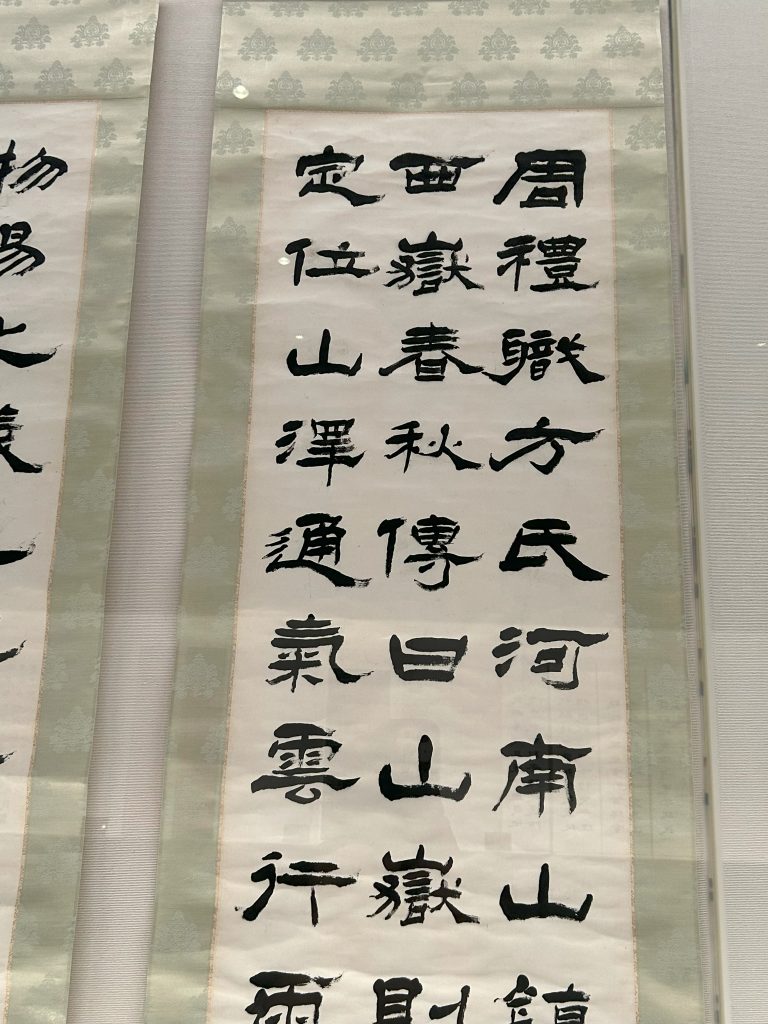 周禮職方氏河南山鎮
西嶽春秋傳曰山嶽則
定位山澤通氣雲行雨
物易之義